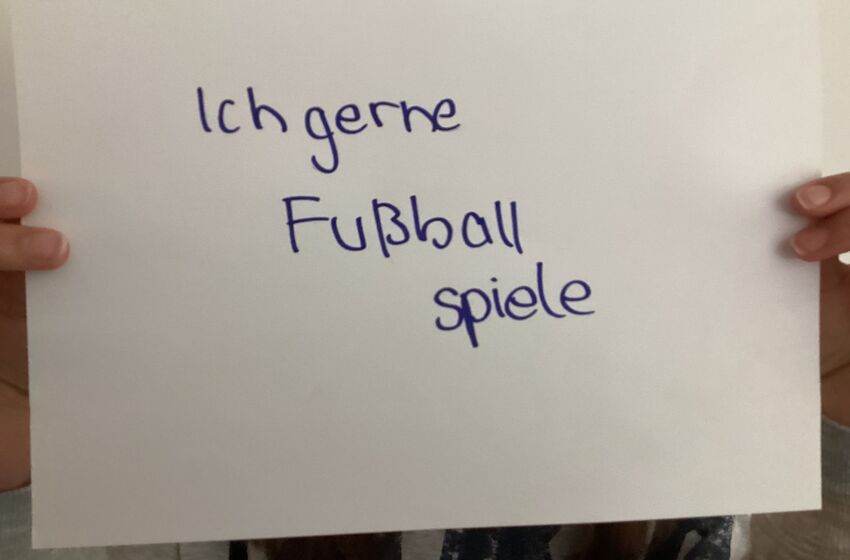 Ich gerne
Fußball
spiele